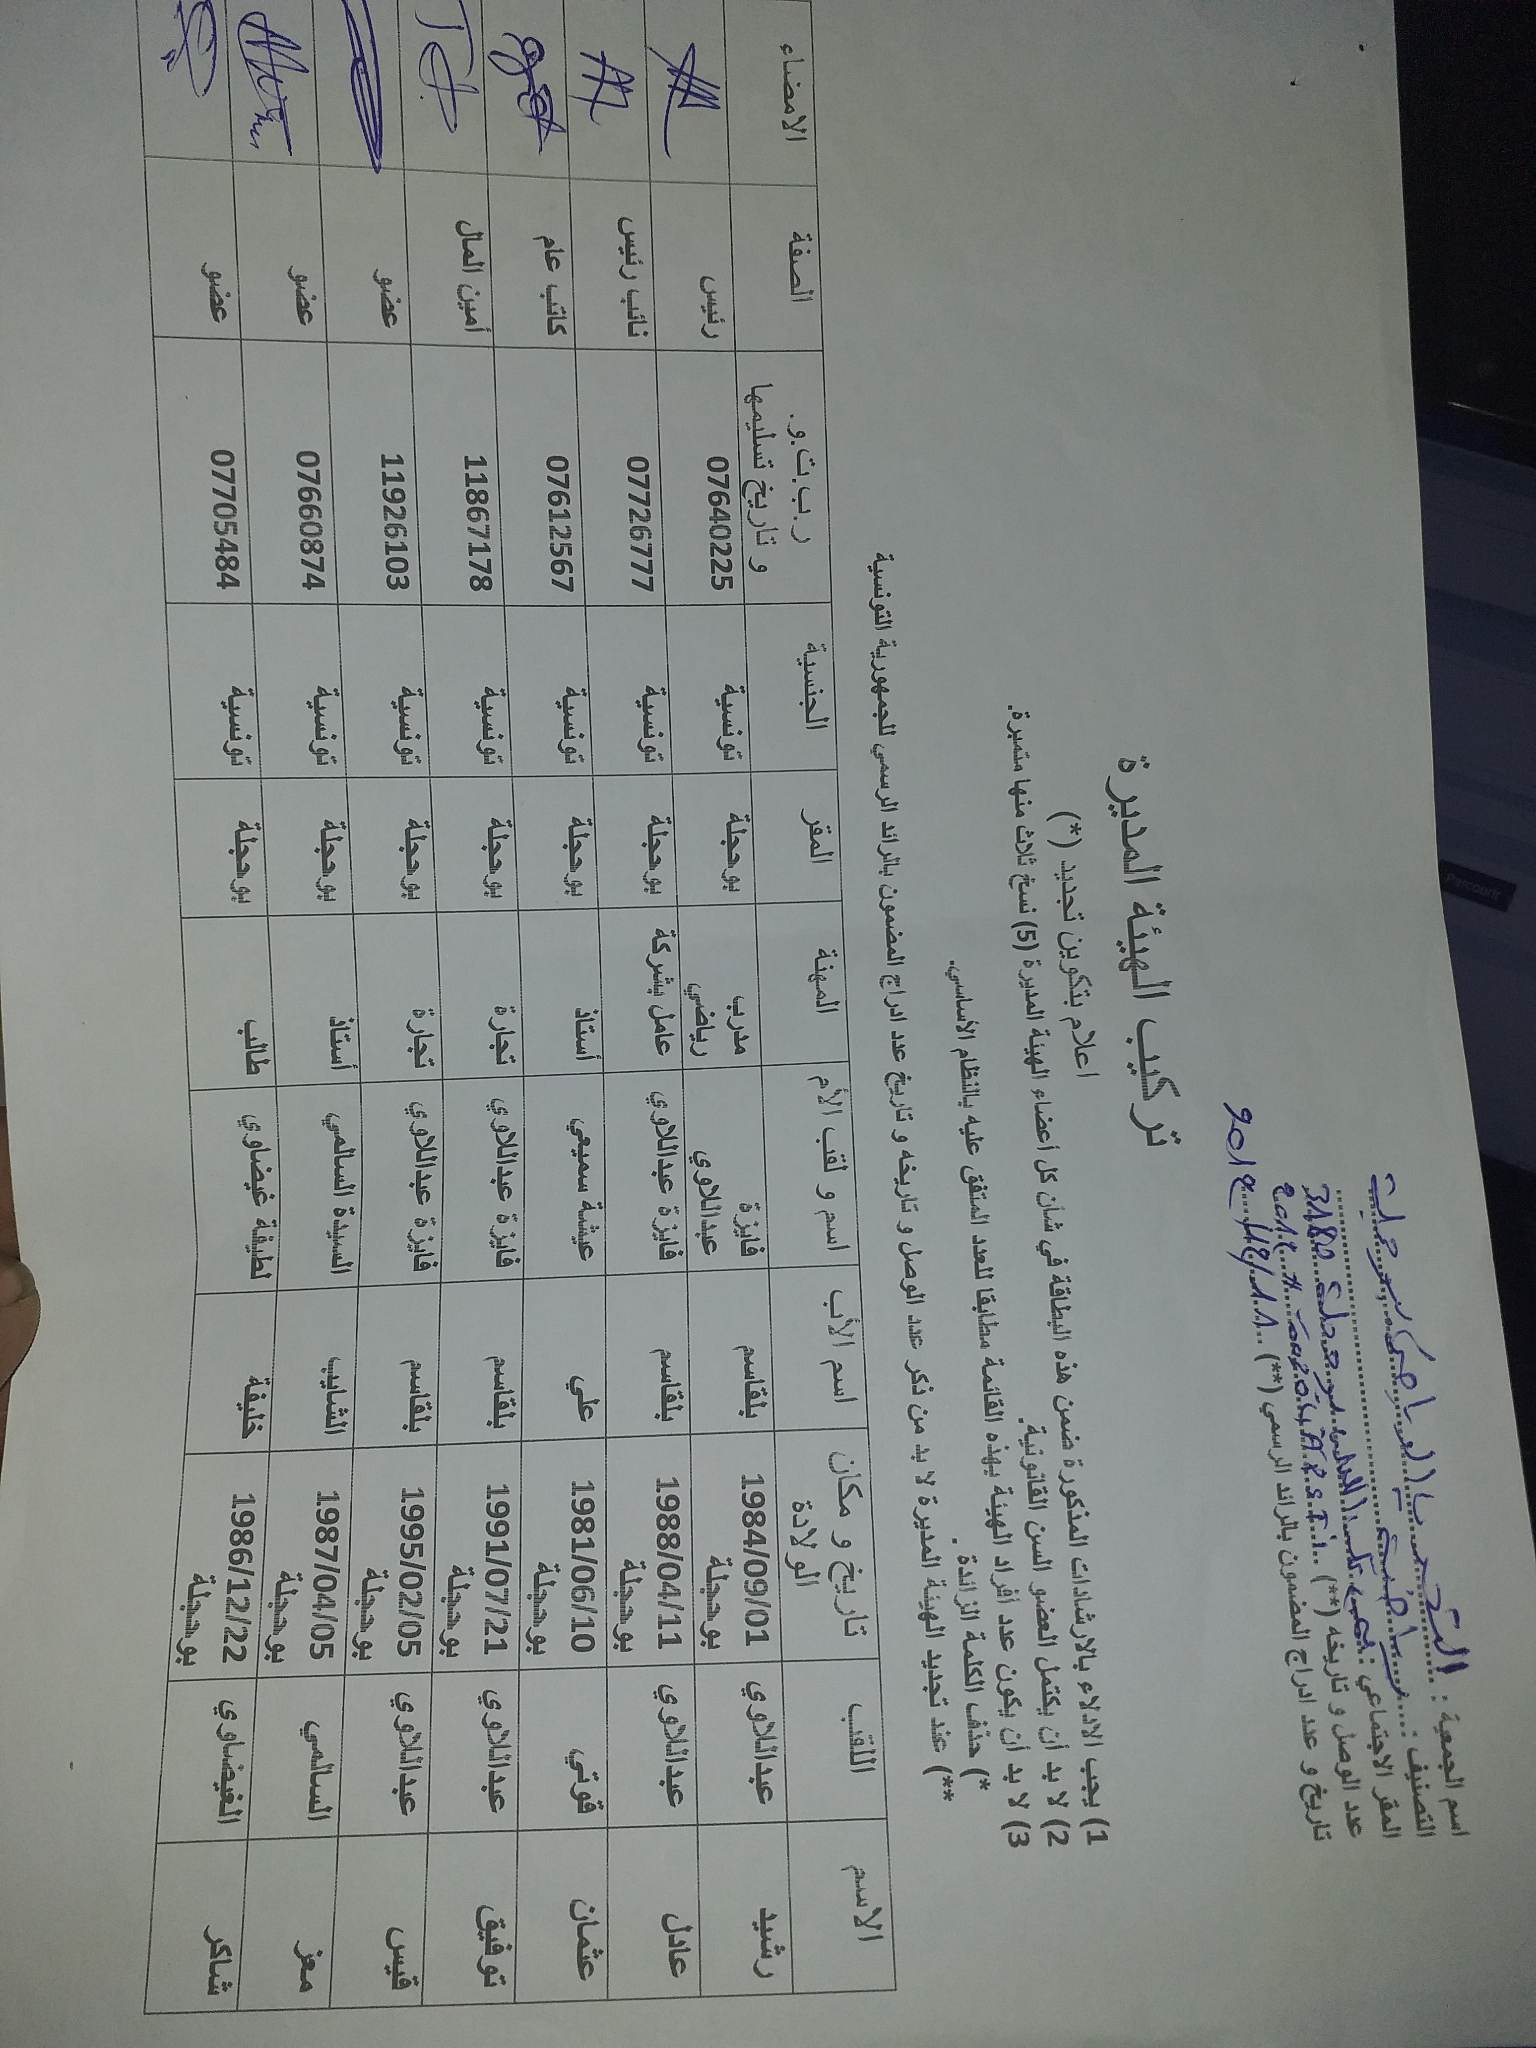 اسم الجمعية : النجم الرياضي ببوحجلة
التصنيف : رياضية
المقر الاجتماعي :
عدد الوصل و تاريخه (**)
تاريخ و عدد ادراج المضمون بالرائد الرسمي (**)
تركيب الهيئة المديرة
اعلام بتكوين تجديد (*)
1) يجب الادلاء بالارشادات المذكورة ضمن هذه البطاقة في شأن كل أعضاء الهيئة المديرة (5) نسخ ثلاث منها متمبرة.
2) لا بد أن يكتمل العضو السن القانونية.
3) لا بد أن يكون عدد أفراد الهيئة بهذه القائمة مطابقا للعدد المتفق عليه بالنظام الأساسي.
*) حذف الكلمة الزائدة .
**) عند تجديد الهيئة المديرة لا بد من ذكر عدد الوصل و تاريخه و تاريخ عدد ادراج المضمون بالرائد الرسمي للجمهورية التونسية
الاسم اللقب تاريخ و مكان الولادة اسم الأب اسم و لقب الأم المهنة المقر الجنسية ر.ب.ت.و. و تاريخ تسليمها الصفة الامضاء
رشيد عبداللاوي 1984/09/01 بوحجلة بلقاسم فايزة عبداللاوي مدرب رياضي بوحجلة تونسية 07640225 رئيس
عادل عبداللاوي 1988/04/11 بوحجلة بلقاسم فايزة عبداللاوي عامل بشركة بوحجلة تونسية 07726777 نائب رئيس
عثمان قوتي 1981/06/10 بوحجلة علي عيشة سميعي أستاذ بوحجلة تونسية 07612567 كاتب عام
توفيق عبداللاوي 1991/07/21 بوحجلة بلقاسم فايزة عبداللاوي تجارة بوحجلة تونسية 11867178 أمين المال
قيس عبداللاوي 1995/02/05 بوحجلة بلقاسم فايزة عبداللاوي تجارة بوحجلة تونسية 11926103 عضو
معز السالمي 1987/04/05 بوحجلة الشايب السيدة السالمي أستاذ بوحجلة تونسية 07660874 عضو
شاكر الغيضاوي 1986/12/22 بوحجلة خليفة لطيفة غيضاوي طالب بوحجلة تونسية 07705484 عضو
Parcourir